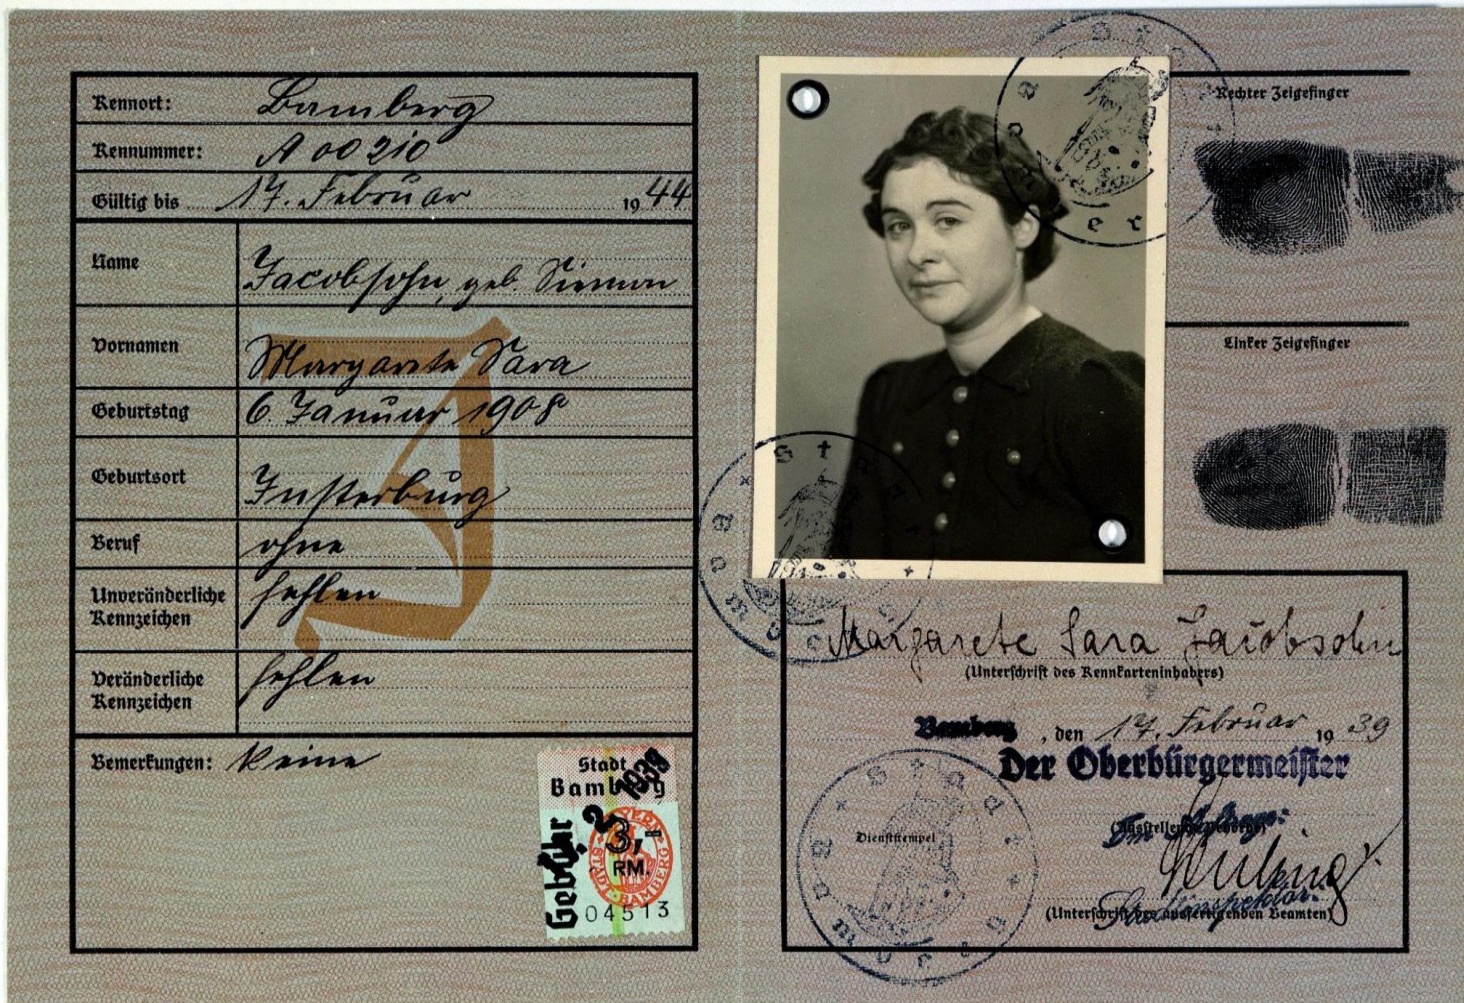 Kennort: Bamberg
Kennummer: A 00210
Gültig bis 17. Februar 1944
Name Jacobsohn, geb. Simon
Vornamen Margarete Sara
Geburtstag 6. Januar 1908
Geburtsort Insterburg
Beruf ohne
Unveränderliche Kennzeichen fehlen
Veränderliche Kennzeichen fehlen
Bemerkungen: Keine
J
Stadt
Bamberg
2. 1939
Gebühr
3,-
RM.
STADT BAMBERG
04513
Rechter Zeigefinger
Linker Zeigefinger
Margarete Sara Jacobsohn
(Unterschrift des Kennkarteninhabers)
Bamberg, den 17. Februar 1939
Der Oberbürgermeister
(Ausstellende Behörde)
Im Auftrage:
Dienststempel
Stadtinspektor.
(Unterschrift des ausfertigenden Beamten)